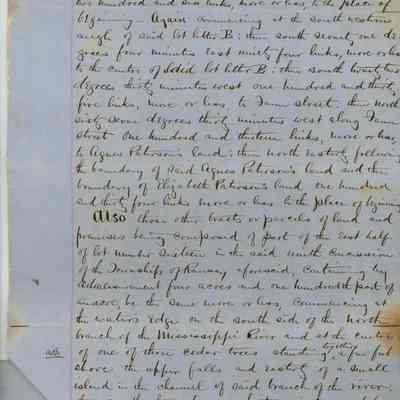 two hundred and six links, more or less, to the place of
beginning. Again commencing at the south western
angle of said lot letter B: then south seventy one de-
grees four minutes East ninety four links, more or less
to the centre of said lot letter B: then south twenty two
degrees thirty minutes west one hundred and thirty
five links, more or less, to street: then north
sixty seven degrees thirty minutes west along
street one hundred and thirteen links, more or less,
to Agnes Paterson's land: then north easterly following
the boundary of said Agnes Paterson's land and the
boundary of Elizabeth Paterson's land one hundred
and thirty four links more or less to the place of beginning
Also those other tracts or parcels of land and
premises being composed of part of the East half
of lot number sixteen in the said ninth concession
of the Township of Ramsay aforesaid, containing by
admeasurement four acres and one hundredth part of
an acre, be the same more or less, commencing at
the water's edge on the south side of the North
branch of the Mississippi River and at the centre
of one of three cedar trees standing together, a few feet
above the upper falls and easterly of a small
island in the channel of said branch of the river: